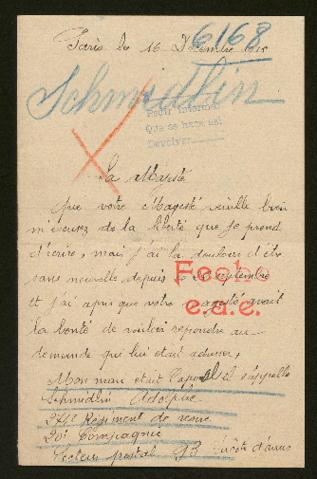 6168
Paris le 16 Décembre 1915
Schmidlin
Pedir informes
Que se haga así
Devolver
Sa Majesté
Que votre Magesté veuille bien
m'excusez de la liberté que je prend
d'écrire, mais j'ai la douleur d'être
sans nouvelle depuis le septembre
et j'ai apris que votre Magesté avait
la bonté de vouloir repondre au
demande qui lui était adresser,
Fecho
e.a.e.
Mon mari était Caporal il s'appelle
Schmidlin Adolphe
Régiment de
20e Compagnie
Secteur postal 93